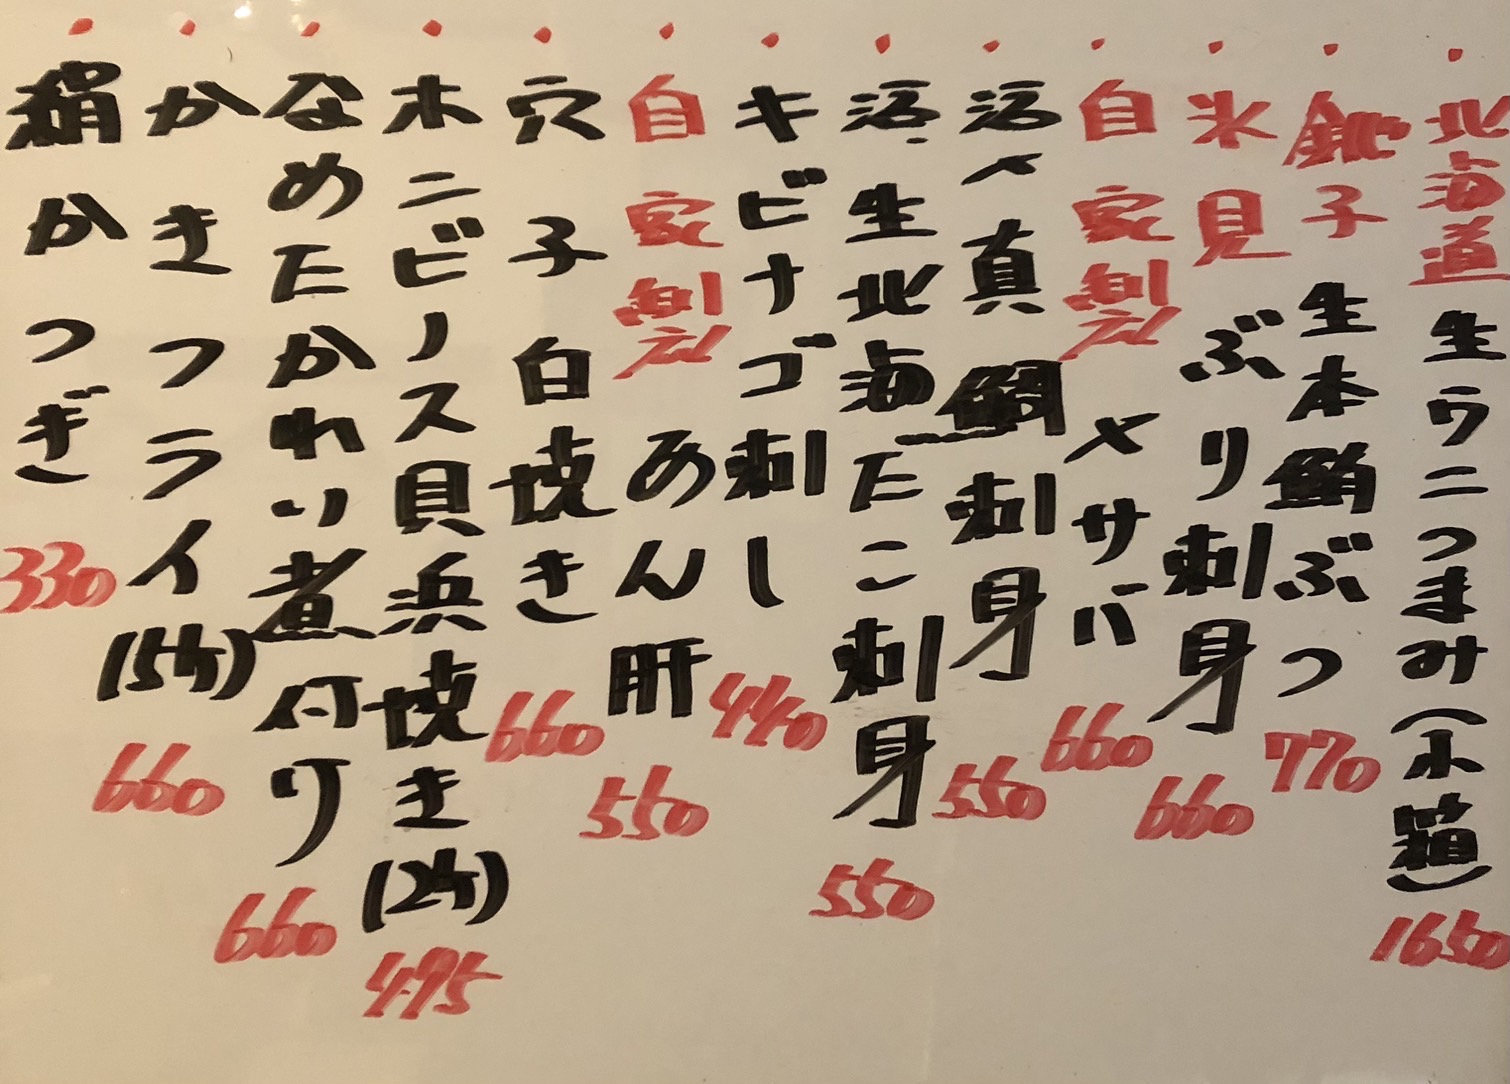 北海道 生ウニつまみ(小箱) 1650
銚子 生本鮪ぶつ 770
氷見 ぶり刺身 660
自家製 〆サバ 660
活〆真鯛刺身 550
活生北海たこ刺身 550
キビナゴ刺し 440
自家製 あん肝 550
穴子白焼き 660
ホンビノス貝浜焼き(2ケ) 495
なめたかれい煮付け 660
かきフライ(5ケ) 660
絹かつぎ 330